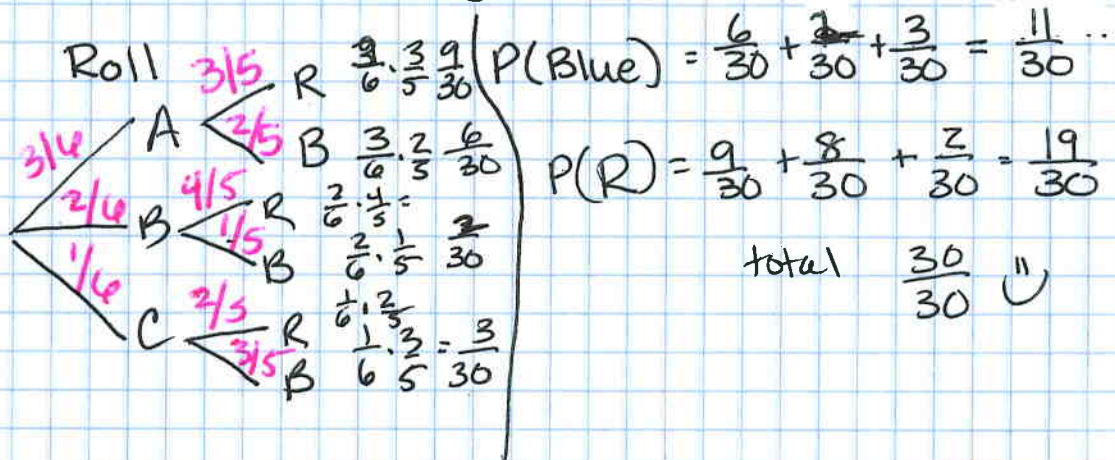 Roll
3/6 A 3/5 R 3/6 · 3/5 9/30
2/5 B 3/6 · 2/5 6/30
2/6 B 4/5 R 2/6 · 4/5 =
1/5 B 2/6 · 1/5 2/30
1/6 C 2/5 R 1/6 · 2/5
3/5 B 1/6 · 3/5 = 3/30
P(Blue) = 6/30 + 2/30 + 3/30 = 11/30 ..
P(R) = 9/30 + 8/30 + 2/30 = 19/30
total 30/30